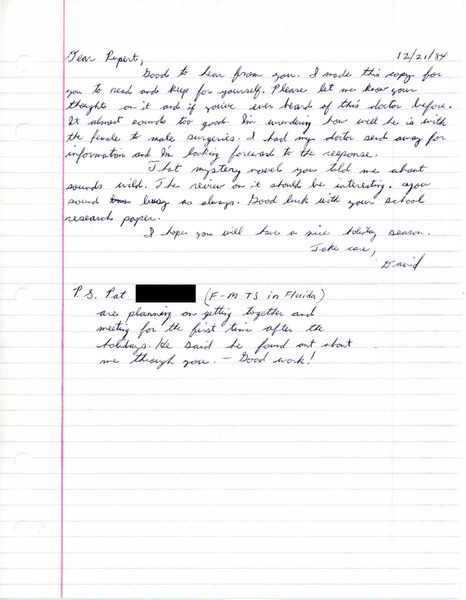 Dear Rupert, 12/21/84
Good to hear from you. I made this copy for
you to read and keep for yourself. Please let me know your
thoughts on it and if you've ever heard of this doctor before.
It almost sounds too good. I'm wondering how well he is with
the female to male surgeries. I had my doctor send away for
information and I'm looking forward to the response.
That mystery novel you told me about
sounds wild. The review on it should be interesting. You
sound busy as always. Good luck with your school
research paper.
I hope you will have a nice holiday season.
Take care,
David
P.S. Pat (F-M TS in Florida)
are planning on getting together and
meeting for the first time after the
holidays. He said he found out about
me through you. – Good work!